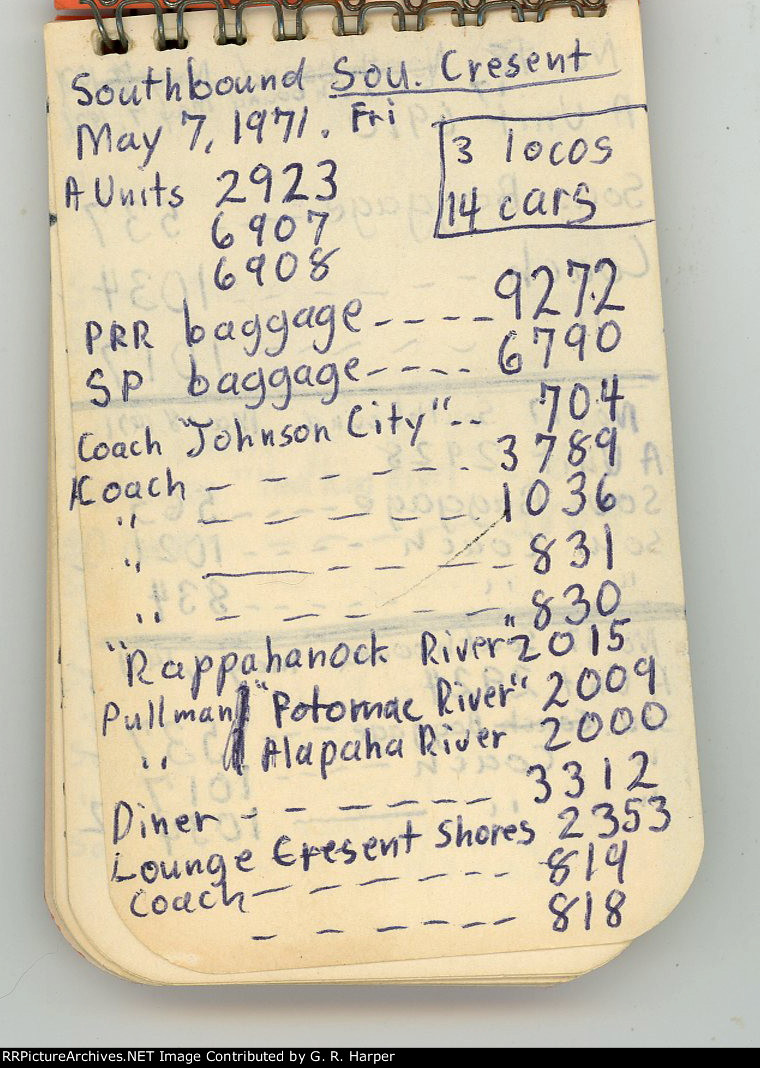 Southbound Sou. Cresent
May 7, 1971. Fri
3 locos
14 cars
A Units 2923
6907
6908
PRR baggage ---- 9272
SP baggage ---- 6790
Coach "Johnson City" -- 704
Coach - - - - - - 3789
" - - - - - - 1036
" - - - - - 831
" - - - - - - 830
"Rappahanock River" 2015
Pullman "Potomac River" 2009
" Alapaha River 2000
Diner - - - - - - 3312
Lounge Cresent Shores 2353
Coach - - - - - - - 819
- - - - - - - 818
RRPictureArchives.NET Image Contributed by G. R. Harper